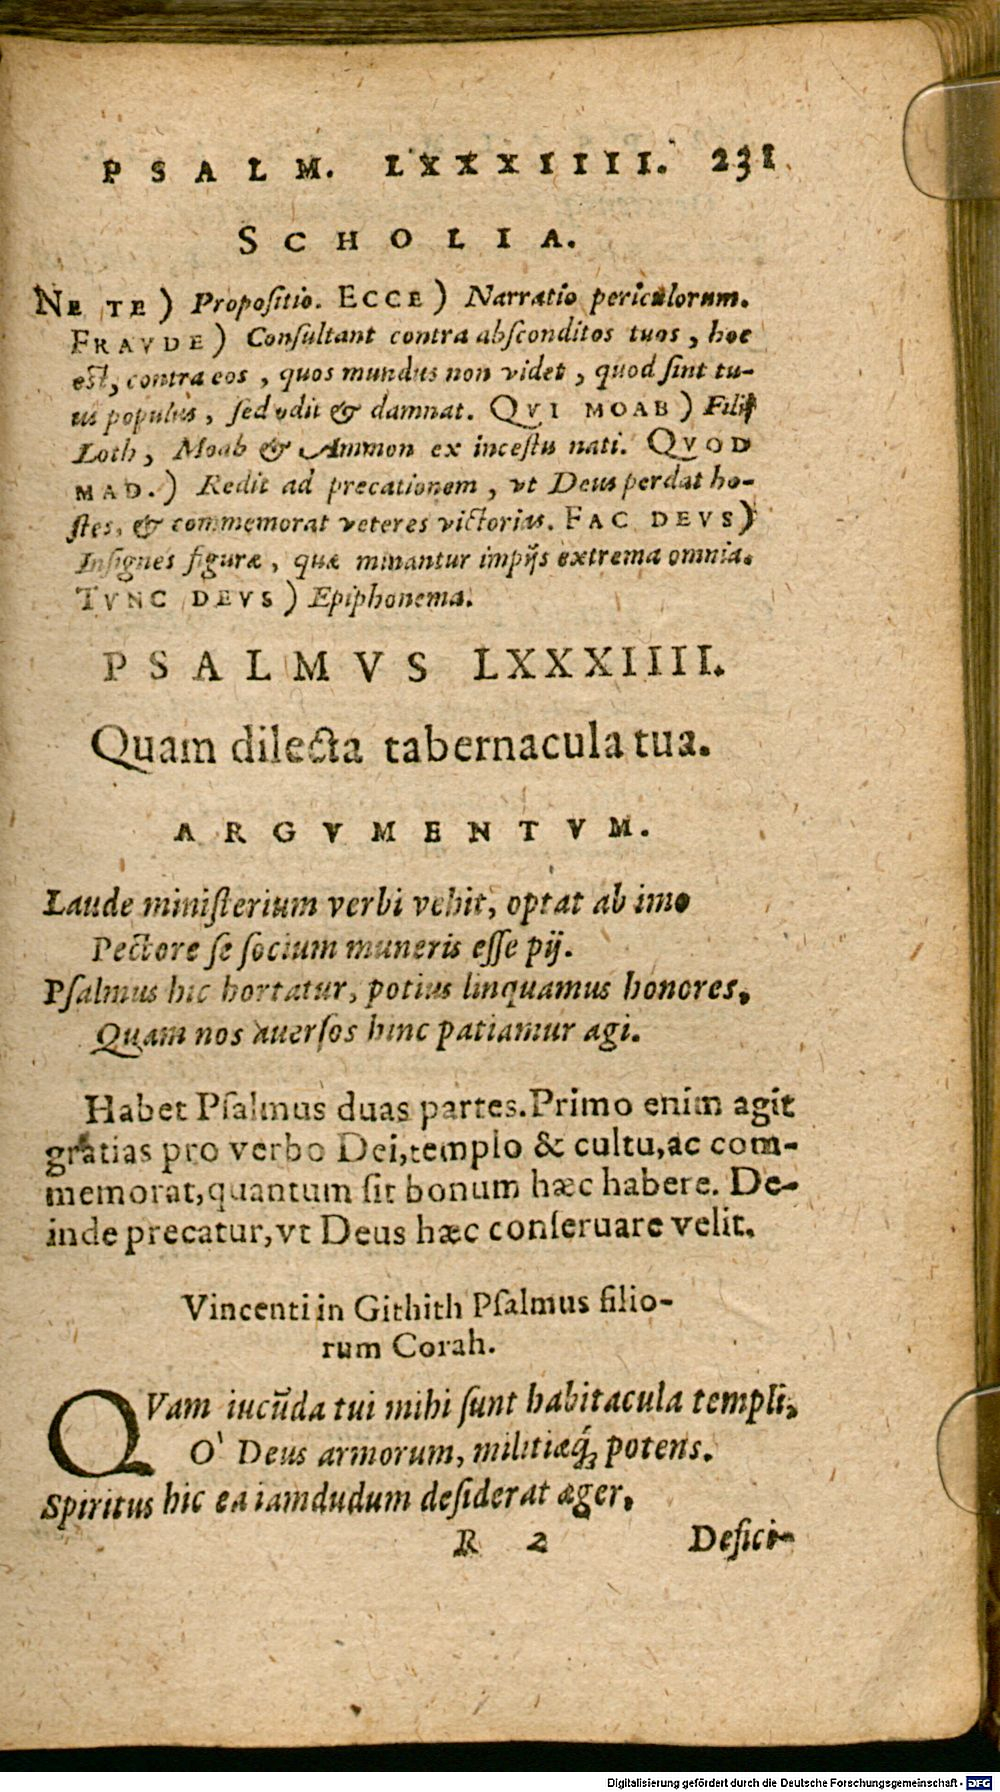 PSALM. LXXXIIII. 231
SCHOLIA.
NE TE) Propoſitio. ECCE) Narratio periculorum.
FRAVDE) Conſultant contra abſconditos tuos, hoc
eſt, contra eos, quos mundus non videt, quod ſint tu-
us populus, ſed odit & damnat. QVI MOAB) Filij
Loth, Moab & Ammon ex inceſtu nati. QVOD
MAD.) Redit ad precationem, vt Deus perdat ho-
ſtes, & commemorat veteres victorias. FAC DEVS)
Inſignes figuræ, quæ minantur impijs extrema omnia.
TVNC DEVS) Epiphonema.
PSALMVS LXXXIIII.
Quam dilecta tabernacula tua.
ARGVMENTVM.
Laude miniſterium verbi vehit, optat ab imo
Pectore ſe ſocium muneris eſſe pij.
Pſalmus hic hortatur, potius linquamus honores,
Quam nos auerſos hinc patiamur agi.
Habet Pſalmus duas partes. Primo enim agit
gratias pro verbo Dei, templo & cultu, ac com-
memorat, quantum ſit bonum hæc habere. De-
inde precatur, vt Deus hæc conſeruare velit.
Vincenti in Githith Pſalmus filio-
rum Corah.
QVam iucūda tui mihi ſunt habitacula templi,
Ò Deus armorum, militiæq́; potens.
Spiritus hic ea iamdudum deſiderat æger,
R 2 Defici-
Digitalisierung gefördert durch die Deutsche Forschungsgemeinschaft - DFG